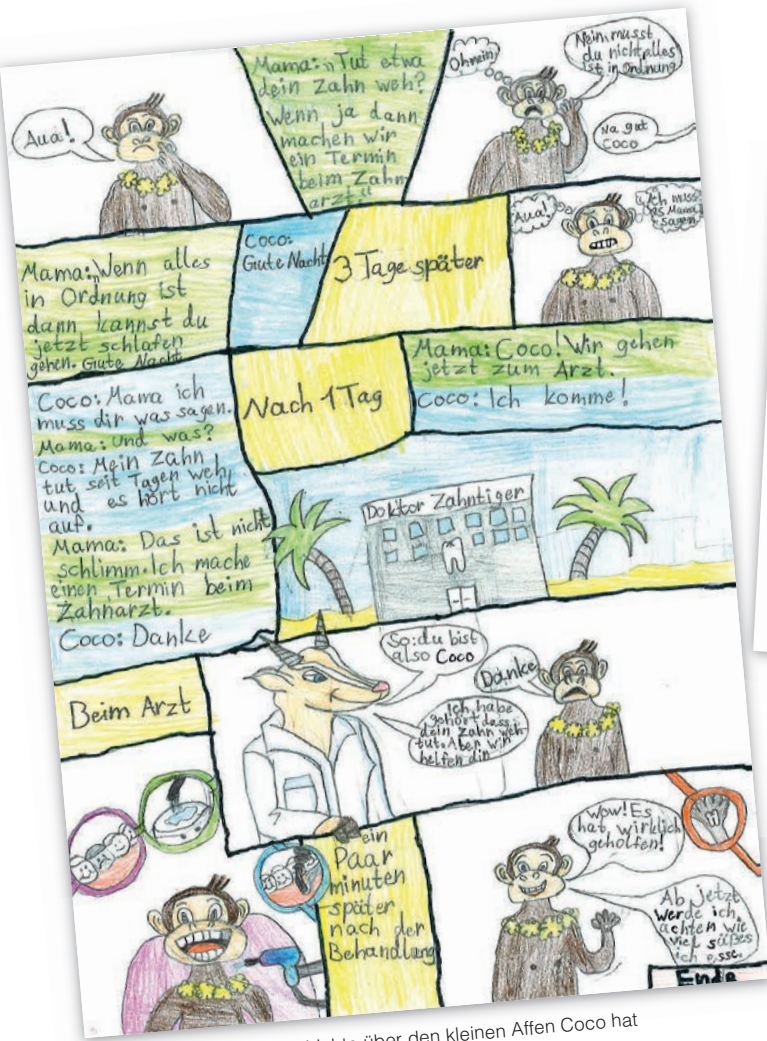 Aua!
Mama: „Tut etwa
dein Zahn weh?
Wenn ja dann
machen wir
ein Termin
beim Zahn
arzt."
Ohnein
Nein, musst
du nicht alles
ist in Ordnung
Na gut
Coco
Mama: „Wenn alles
in Ordnung ist
dann kannst du
jetzt schlafen
gehen. Gute Nacht
Coco:
Gute Nacht
3 Tage später
Aua!
Ich muss
es Mama
sagen
Coco: Mama ich
muss dir was sagen.
Mama: Und was?
Coco: Mein Zahn
tut seit Tagen weh,
und es hört nicht
auf.
Mama: Das ist nicht
schlimm. Ich mache
einen Termin beim
Zahnarzt.
Coco: Danke
Nach 1 Tag
Mama: Coco! Wir gehen
jetzt zum Arzt.
Coco: Ich komme!
Doktor Zahntiger
Beim Arzt
So: du bist
also Coco
Ich habe
gehört dass
dein Zahn weh
tut. Aber wir
helfen dir
Danke
ein
Paar
minuten
später
nach der
Behandlung
Wow! Es
hat wirklich
geholfen!
Ab jetzt
werde ich
achten wie
viel süßes
ich esse.
Ende
über den kleinen Affen Coco hat